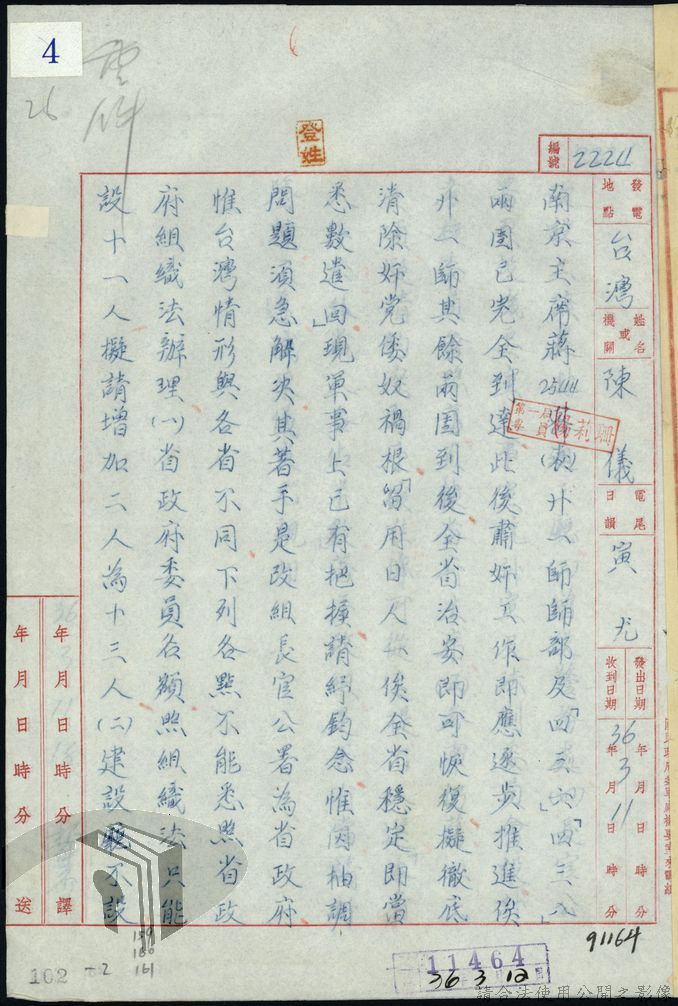 4
26
登姓
編號 2224
發電地點 台灣
姓名或機關 陳儀
電尾日韻 寅尤
發出日期 年 月 日 時 分
收到日期 36年3月11日 時 分
南京主席蔣 廿一師師部及「四三六」「四三八」
兩團已完全到達此後肅奸工作即應逐步推進俟
廿一師其餘兩團到後全省治安即可恢復擬徹底
清除奸党倭奴禍根「留用日人 俟全省穩定即當
悉數遣回」現軍事上已有把握請紓鈞念惟因抽調
問題須急解決其著手是改組長官公署為省政府
惟台灣情形與各省不同下列各點不能悉照省政
府組織法辦理(一)省政府委員名額照組織法只能
設十一人擬請增加二人為十三人(二)建設廳不設
年 月 日 時 分 譯
年 月 日 時 分 送
91164
11464
36 3 12
159
160
161
102
-2
請合法使用公開之影像